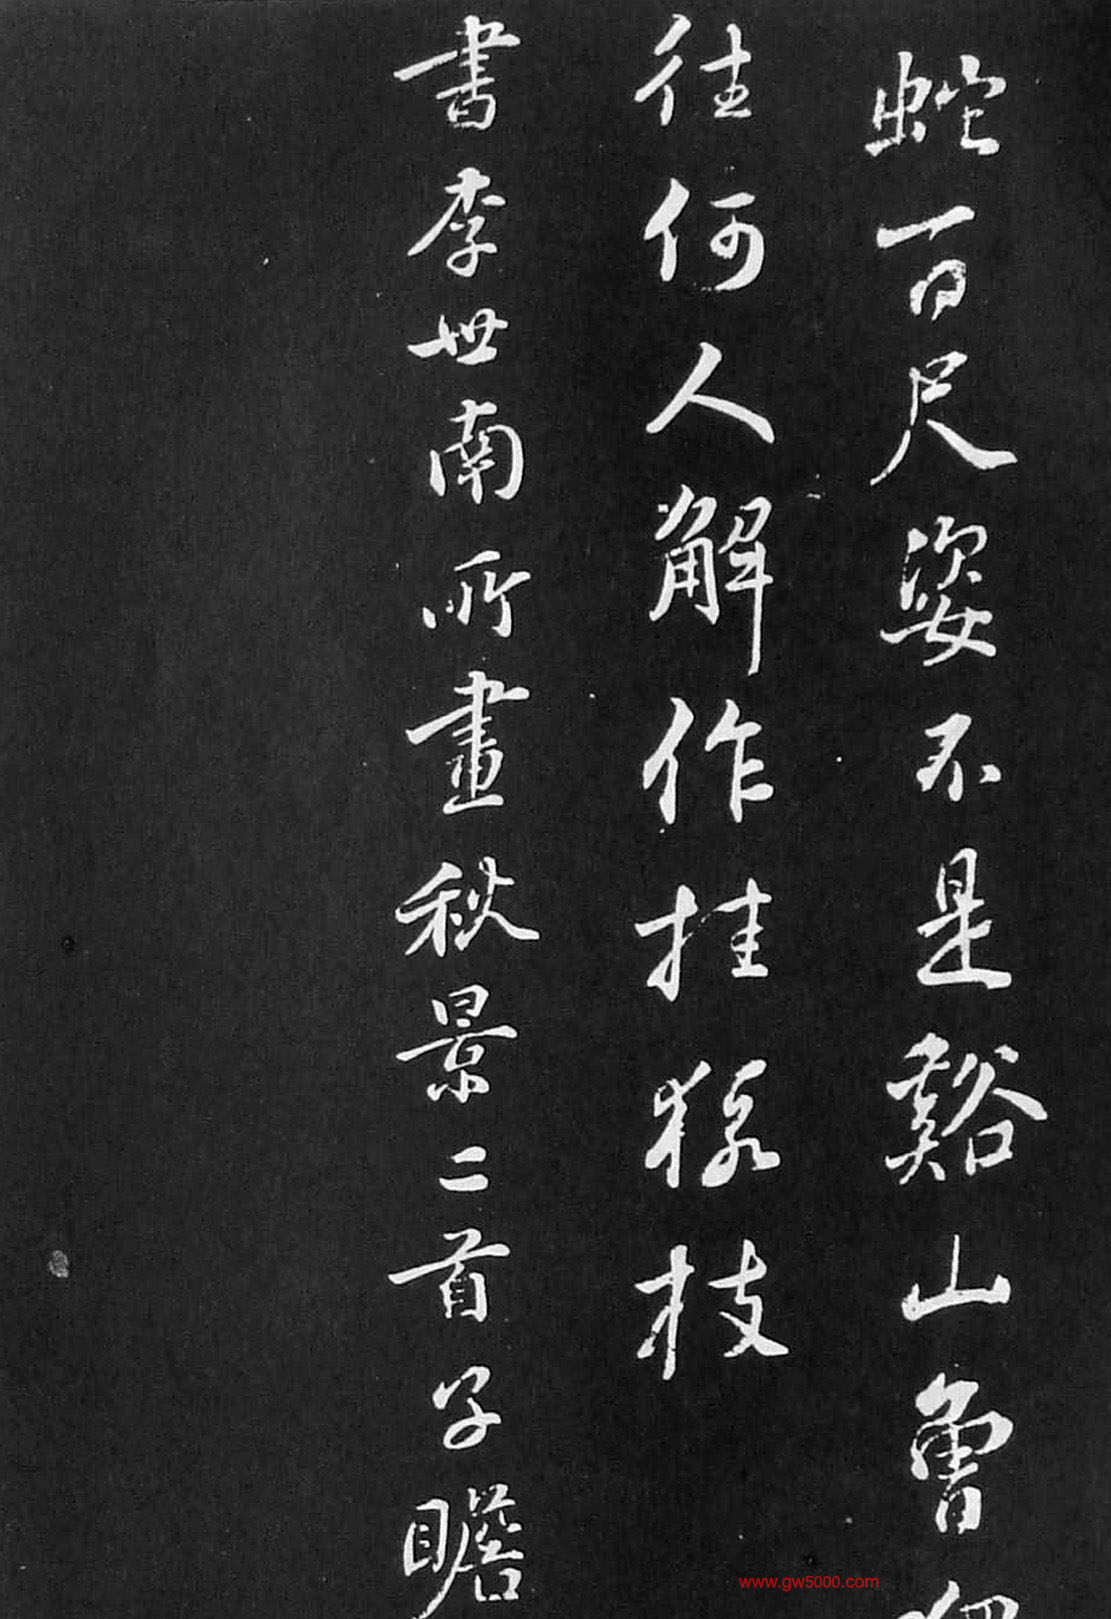 蛇百尺姿不是谿山曾
往何人解作挂猨枝
書李世南所畫秋景二首子瞻
www.gw5000.com